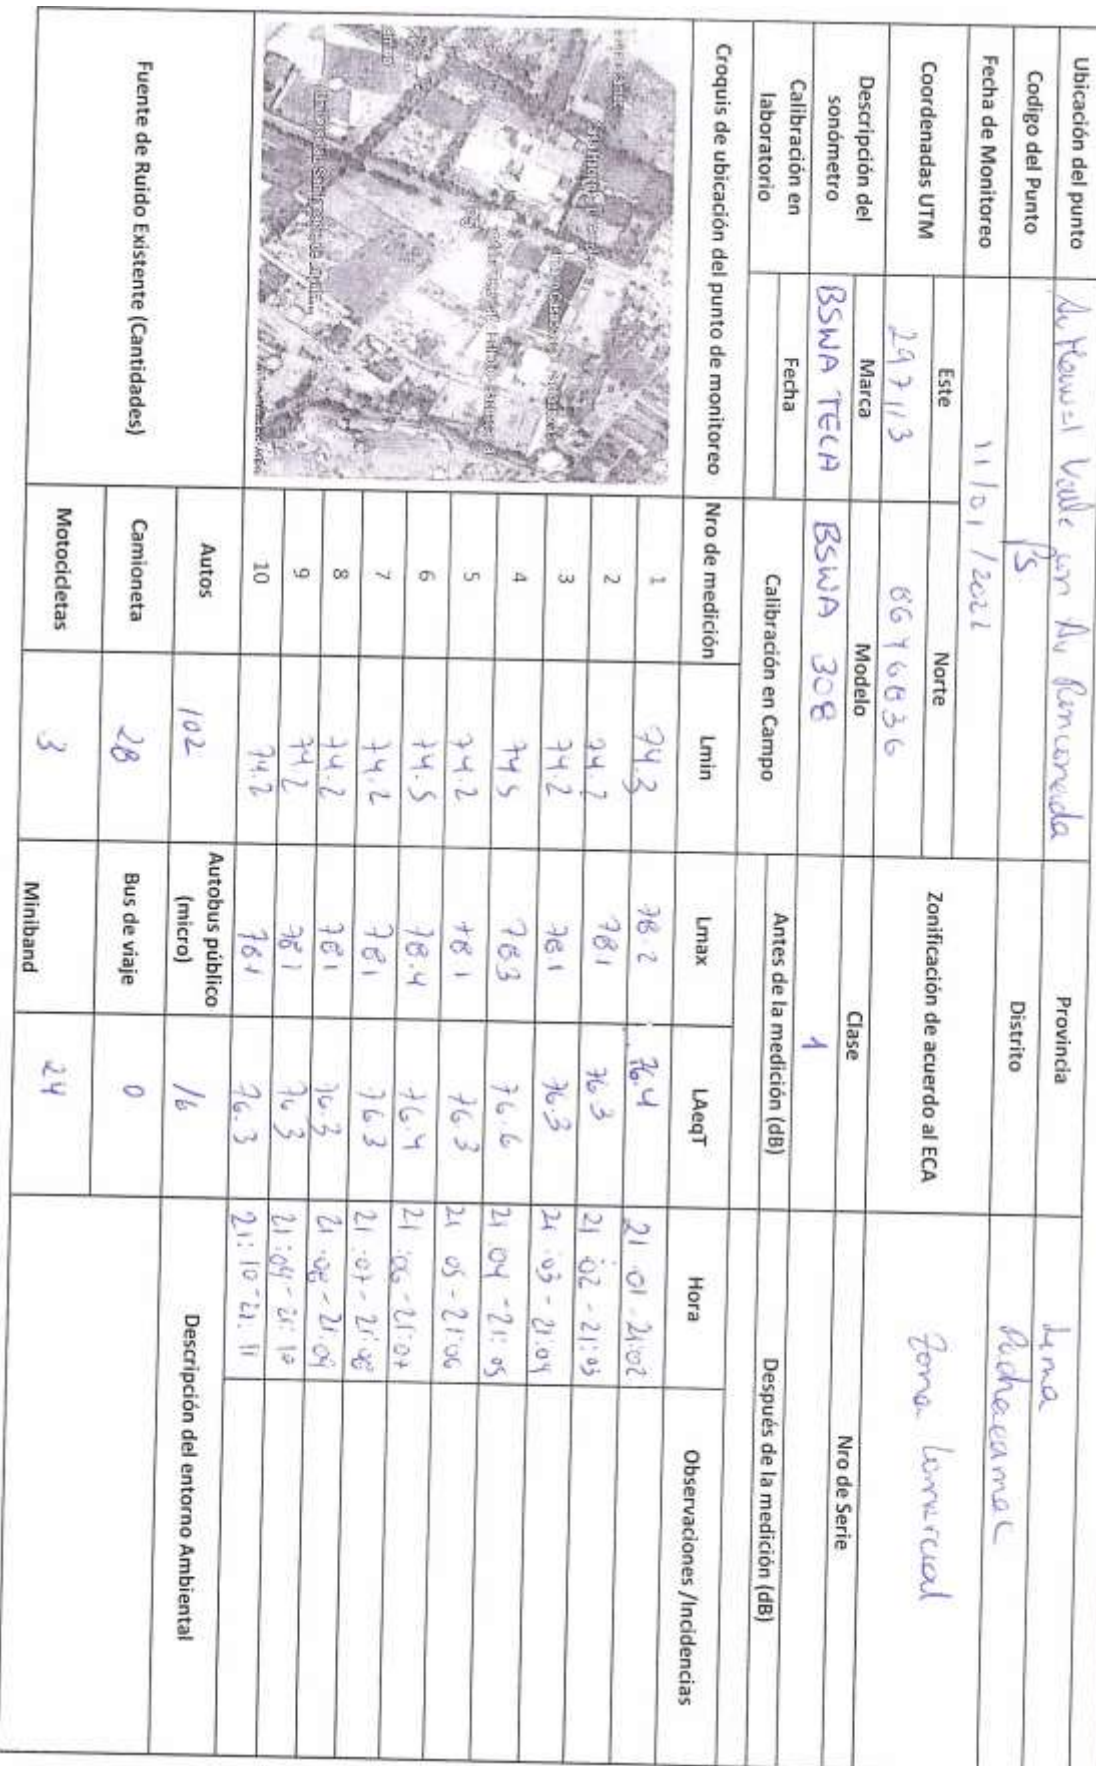 Ubicación del punto Av Manuel Valle con Av Rinconada Provincia Lima
Codigo del Punto P5 Distrito Pachacamac
Fecha de Monitoreo 11/01/2022
Coordenadas UTM Este Norte Zonificación de acuerdo al ECA Zona Comercial
297113 8646836
Descripción del sonómetro Marca Modelo Clase Nro de Serie
BSWA TECH BSWA 308 1
Calibración en laboratorio Fecha Calibración en Campo Antes de la medición (dB) Después de la medición (dB)
Croquis de ubicación del punto de monitoreo Nro de medición Lmin Lmax LAeqT Hora Observaciones /Incidencias
1 74.3 78.2 76.4 21 01 - 21:02
2 74.2 78.1 76.3 21 :02 - 21:03
3 74.2 78.1 76.3 21 :03 - 21:04
4 74.5 78.3 76.6 21 :04 - 21:05
5 74.2 78.1 76.3 21 05 - 21:06
6 74.5 78.4 76.4 21 :06 - 21:07
7 74.2 78.1 76.3 21 :07 - 21:08
8 74.2 78.1 76.3 21 :08 - 21:09
9 74.2 78.1 76.3 21 :09 - 21:10
10 74.2 78.1 76.3 21: 10 - 21: 11
Fuente de Ruido Existente (Cantidades) Autos 102 Autobus público (micro) 16 Descripción del entorno Ambiental
Camioneta 28 Bus de viaje 0
Motocicletas 3 Miniband 24